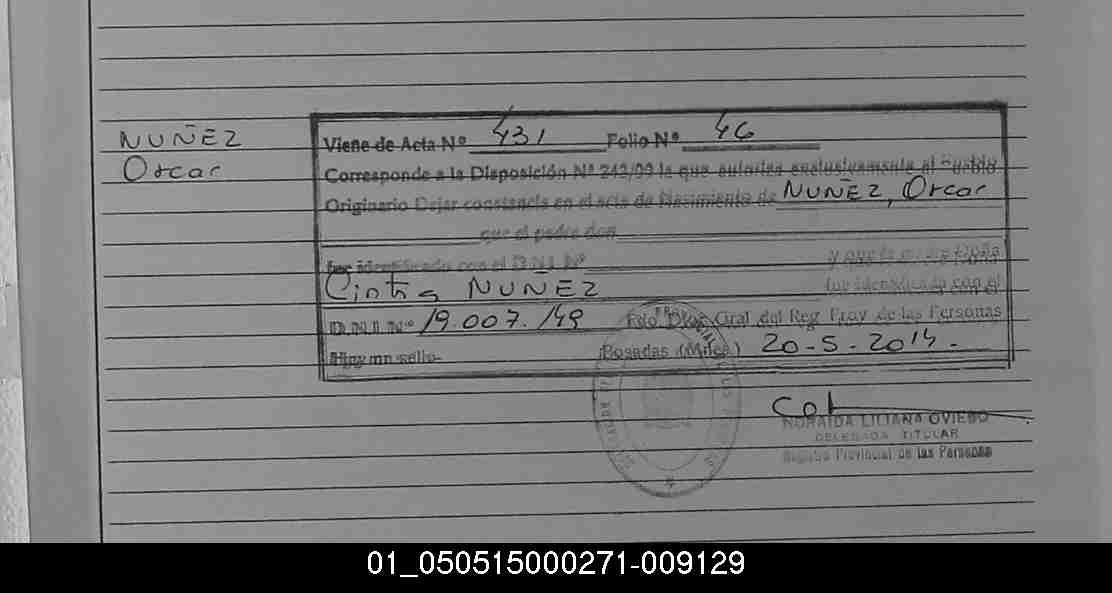 NUÑEZ
Oscar
Viene de Acta Nº 431 Folio Nº 46
Corresponde a la Disposición Nº 242/99 la que autoriza exclusivamente al Pueblo
Originario Dejar constancia en el acta de Nacimiento de NUÑEZ, Oscar
que el padre don
fue identificado con el D.N.I. Nº y que la
fue identificada con el
Cintia NUÑEZ
D.N.I. Nº 19.007.149 Fdo Gral del Reg Prov de las Personas
Hay un sello- Posadas (Mnes) 20-5-2014.
NORAIDA LILIANA OVIEDO
DELEGADA TITULAR
Registro Provincial de las Personas
01_050515000271-009129